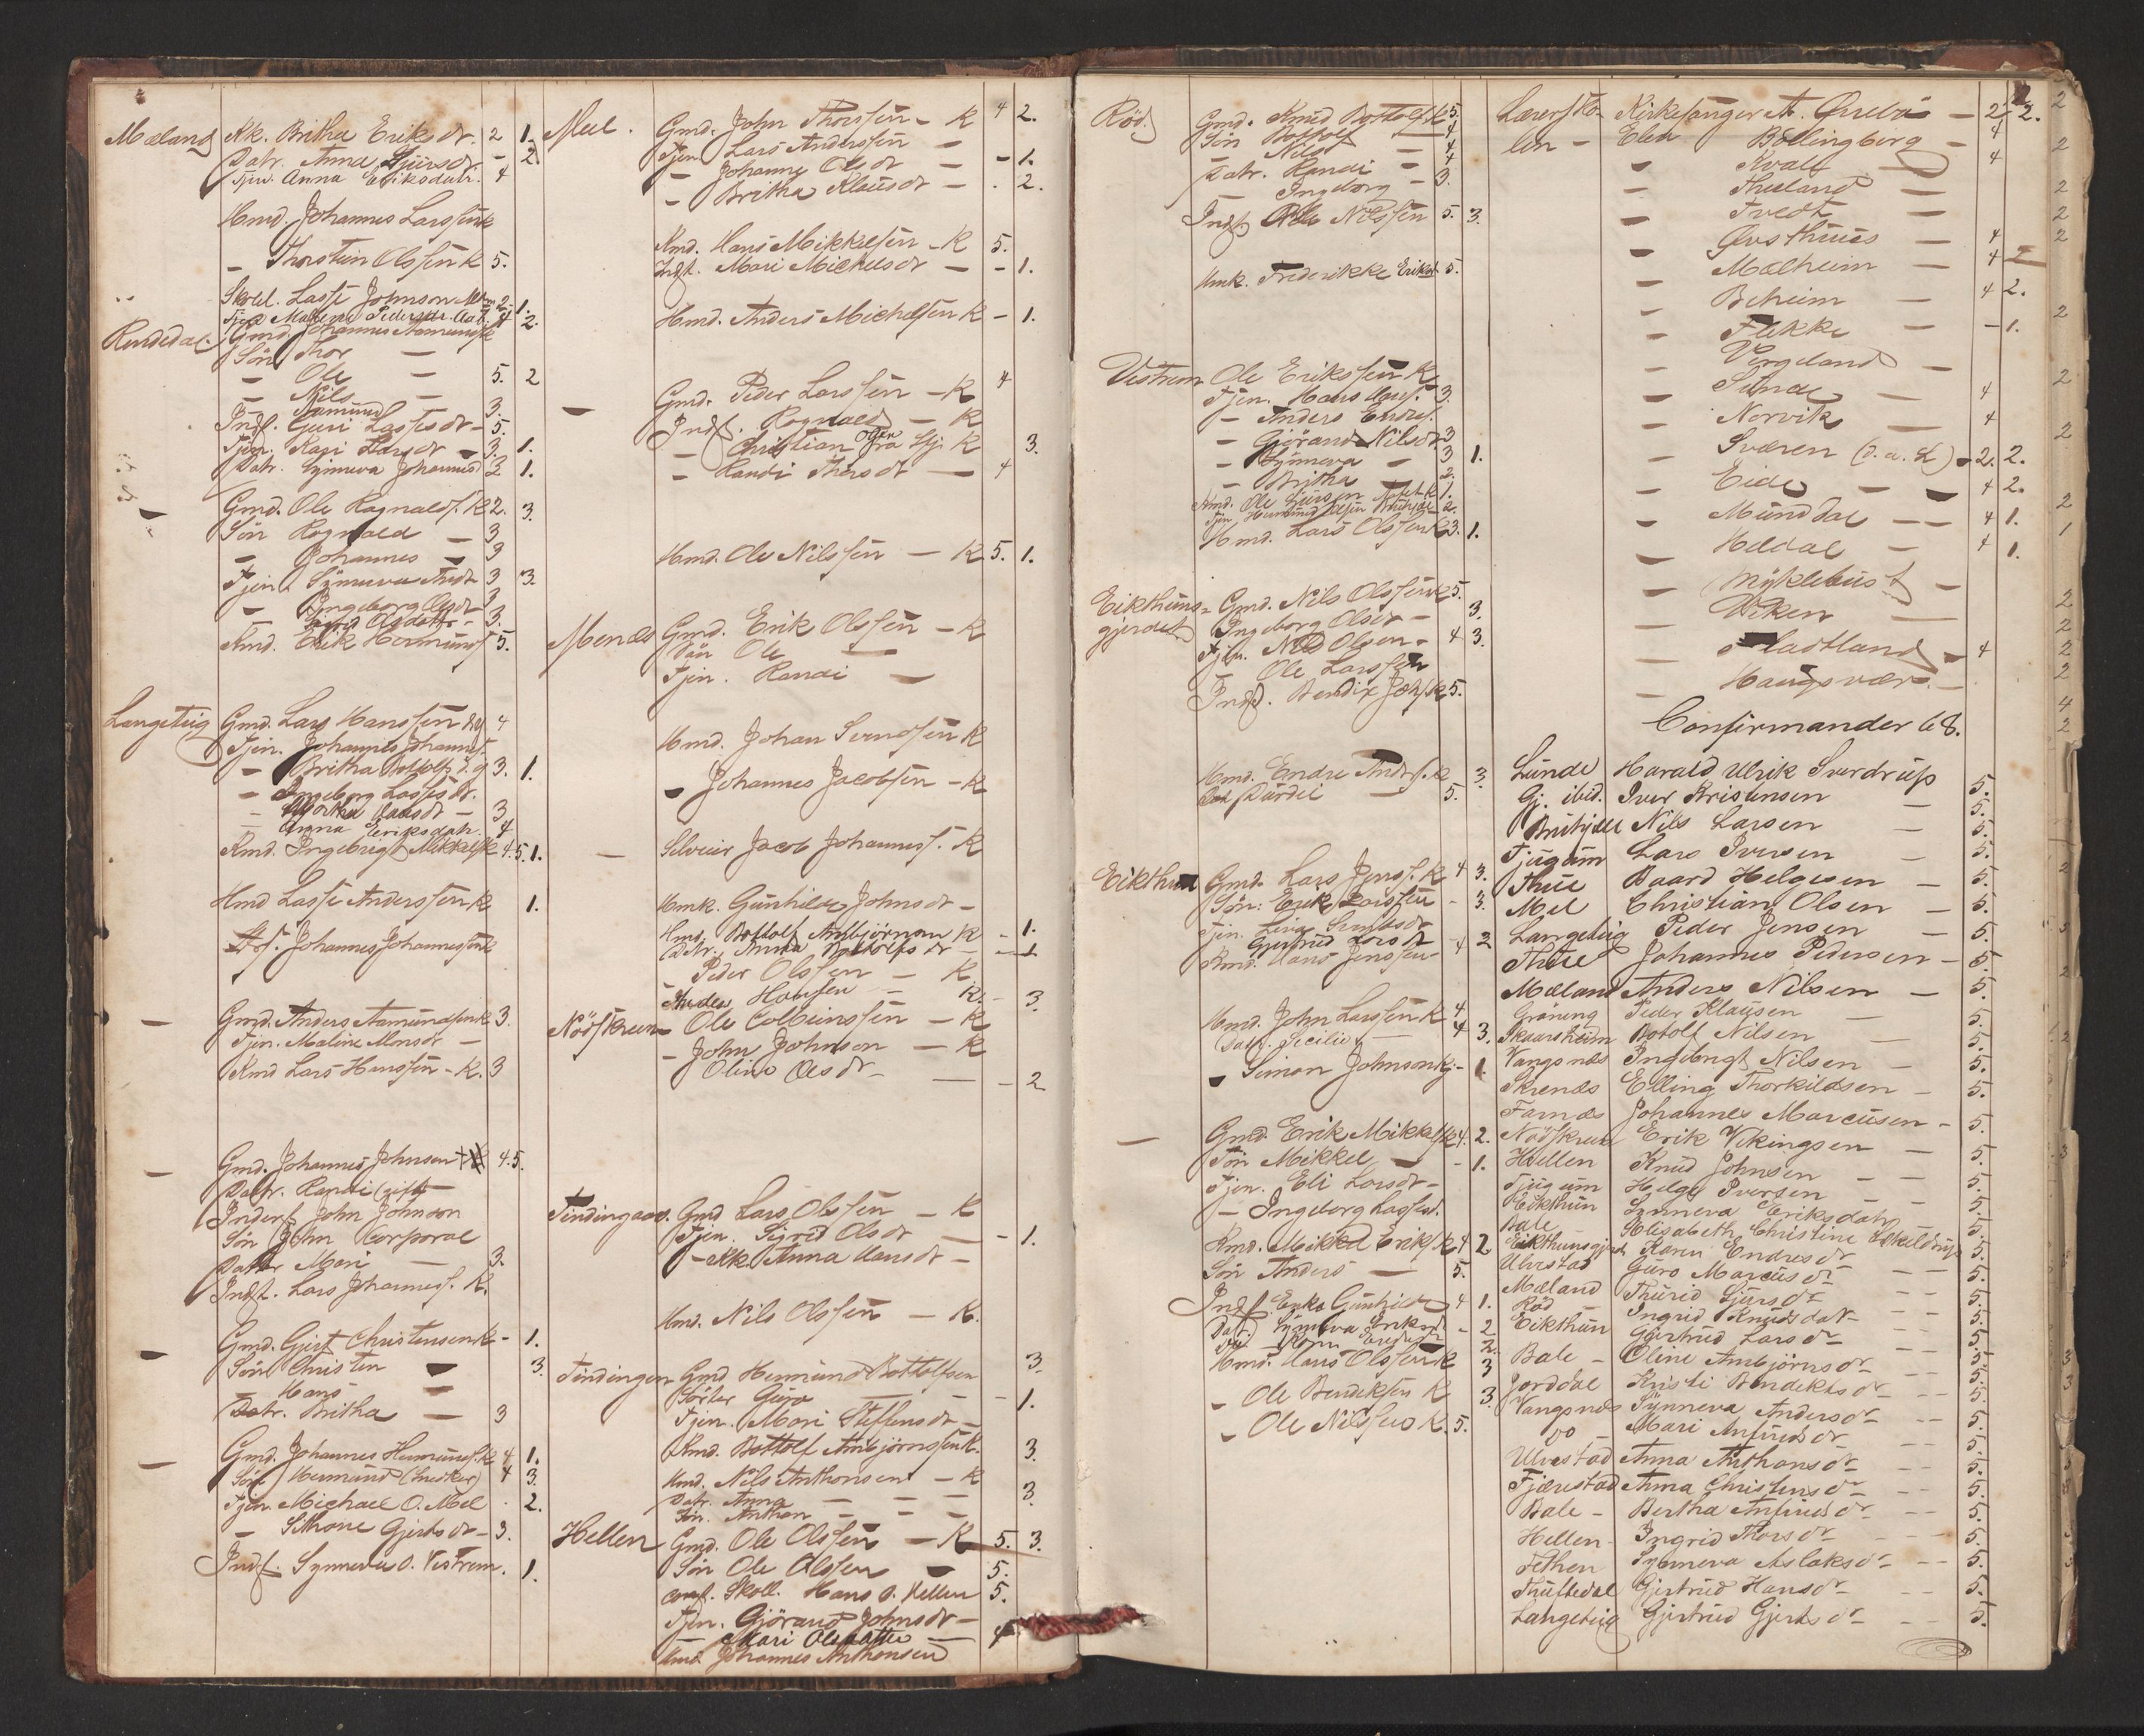 Mæland Kk. Britha Eriksdr. 2 1.
Datr. Anna Sjursdr. - 2.
Tjen. Anna Eriksdatr. 4
Hmd. Johannes Larssen k
- Thorstein Olssen k 5.
Skoll. Lasse Johnson 2 1.
Rendedal. Gmd. Johannes Aamunds k
Søn Thor —
- Ole — 5. 2
- Nils —
- Aamund 3.
Indf. Guri Lassesdr - 5.
Tjen. Kari Larsdr - 3. 1.
Datr. Synneva Johannes 3 1.
— Gmd. Ole Ragnalds. K 2. 3.
Søn Rognald — 3
- Johannes — 3
Tjen. Synneva Andr 3 3.
- Ingeborg Olsdr 3
Kmd. Erik Hermunds 5.
Langeteig Gmd. Lars Hanssen 4
Tjen. Johannes Johannes.
- Britha Botolfs 3. 1.
- Ingeborg Lassesdr.
- Anna Eriksdatr. 4
Kmd. Ingebrigt Mikkels k 4. 5. 1.
Hmd Lasse Anderssen K 1.
Johannes Johannessen k
— Gmd. Anders Aamundsen k 3.
Tjen. Maline Monsdr —
Kmd Lars Hanssen - K. 3
— Gmd. Johannes Johnsen 4. 5.
Datr. Randi (gift)
Inderst John Johnson
Søn John Corporal
Datter Mari — 3.
Indst. Lars Johannes. K.
— Gmd. Gjert Christensen k - 1.
Søn Christen — 3.
- Hans —
Datr. Britha — 3
— Gmd. Johannes Hermunds. k 4 1.
Søn Hermund (Snedker) 4 3.
Tjen. Michael O. Mel . 2.
- Sithone Gjertsdr - 3.
Indf. Synneva O. Vestrem. 1.
Mel. Gmd. John Thorssen - K 4 2.
Tjen. Lars Anderssen —
- Johanne Olsdr — - 1.
- Britha Klausdr — . 2.
Kmd. Hans Mikkelsen - K 5.
Indf. Mari Mickelsdr — - 1.
Hmd. Anders Michelsen K - 1.
— Gmd. Peder Larssen - K 4
Indf. Rognald — K
- Christian Olsen fra K 3.
- Randi Thorsdr — 4
Hmd. Ole Nilssen — K 5. 1.
Menæs Gmd. Erik Olssen — K
Søn Ole —
Tjen. Randi —
Hmd. Johan Svendsen K
- Johannes Jacobsen - K
— Selveier Jacob Johanness. K
Hmk. Gunhilde Johnsdr —
Hmd. Bottolf Ambjørnsen K - 1.
Datr. Anna Bottolfsdr — 1
Peder Olssen — K
Anders Hansen — K. - 3.
Nødskreen Ole Colbeinssen — K
- John Johnson — K
Oline Olsdr — — - 2
Findingaas. Gmd Lars Olssen — K
Tjen. Sigrid Olsdr — - 1.
- Kk. Anna Hansdr —
Hmd. Nils Olssen — K.
Findingen Gmd Hermund Bottolfsen 3.
Søster Guro — — - 1.
Tjen. Mari Steffensdr —
Kmd. Bottolf Ambjørnssen K. 3.
Hmd. Nils Anthonsen — K
Datr. Anna — — — 3.
Søn. Anthon — — —
Hellen Gmd. Ole Olssen — K 5. 3.
Søn Ole Olssen — 5.
conf. Skoll. Hans O. Hellen 5.
Tjen. Gjørand Johnsdr —
- Mari Olsdatter — 4
Hmd Johannes Anthonsen
Rød. Gmd. Knud Bottolfs k 5.
Søn Bottolf — 4
- Nils — 4
Datr. Randi — 4
- Ingeborg - 3.
Indf. Ole Nilssen 5. 3.
Hmk. Frederikke Eriksd 5.
Vestrem Ole Erikssen K
Tjen. Hans Hans. 3.
- Anders Endres.
- Gjørand Nilsdr 3
- Synneva — 3 1.
- Britha — 2.
Hmd. Lars Olssen k 3. 1.
Eikthuns- Gmd. Nils Olssen k 5.
gjerdet Ingeborg Olsdr — 3.
Tjen. Nils Olsen - 4 3.
- Ole Larssen
Indf. Bendix K 5.
Hmd. Endre Anders. k 3
Durdei — 5.
Eikthun Gmd. Lars Jens. K 4 3.
Søn. Erik Larssen - 3.
Gjertrud Larsdr - 4 2
Kmd. Hans Jenssen —
Hmd. John Larssen K 4
Datr. Cecilie — 4 3.
- Simon Johnson k - 1.
— Gmd. Erik Mikkels k 4. 2.
Søn Mikkel — - 1.
Tjen. Eli Larsdr —
- Ingeborg Lassesd.
Kmd. Mikkel Eriks. k 4 2
Søn Anders — 5.
Indf. Enke Gunhild 4 1.
Datr. Synneva Eriksd - 2
Hmd. Hans Olssen k 3
- Ole Bendiksen K 3.
- Ole Nilssen K. 5.
Lærersto- Kirkesanger A. Ørebø — 2 2.
len - Elev Bøllingberg — 4
- Kvale — 4
- Thueland —
- Tvedt —
- Øvsthuus — 4
- Mælheim — 4
- Beheim — 4 2.
- Flekke — - 1.
- Vergeland —
- Sunde — 4
- Norvik — 4
- Sværen (d. a. L) - 2. 2.
- Eide — 4 2.
- Munddal — 4 1.
- Heldal — 4 1.
- Myklebust —
- Viken —
- Fladtland — 4
- Haugsvær —
Confirmander 68.
Lunde Harald Ulrik Sverdrup 5.
Gj. ibid. Iver Kristensen — 5.
Nils Larsen — 5.
Tjugum Lars Iversen — 5.
Thue Baard Helgesen — 5.
Mel Christian Olsen — 5.
Langeteig Peder Jensen — 5.
Thue Johannes Pedersen — 5.
Mæland Anders Nilsen — 5.
Grøning Peder Klausen — 5.
Skaarsheim Botolf Nilsen — 5.
Vangsnes Ingebrigt Nilsen — 5.
Skrenæs Elling Thorkildsen — 5.
Farnæs Johannes Marcusen — 5.
Nødskreen Erik Vikingsen — 5.
Hellen Knud Johnsen — — 5.
Tjugum Helge Iversen — — 5.
Eikthun Synneva Eriksdatr 5.
Bale Elisabeth Christine 5.
Eikthunsgjerd Karen Endresdr — 5.
Ulvestad Guro Marcusdr — 5.
Mæland Thurid Sjursdr — 5.
Rød Ingrid Knudsdatr — 5.
Eikthun Gjertrud Larsdr — 5.
Bale - Oline Ambjørnsdr — 5.
Jorddal Kristi Bendiktsdr — 5.
Vangsnes Synneva Andersdr — 5.
do Mari Anfindsdr — 5.
Ulvestad Anna Anthonsdr — 5.
Fjærestad Anna Christensdr — 5.
Bale - Bertha Anfindsdr — 5.
Hellen - Ingrid Thorsdr — 5.
Fethen Synneva Aslaksdr — 5.
Thuftedal Gjertrud Hansdr — 5.
Langeteig Gjertrud Gjertsdr — 5.